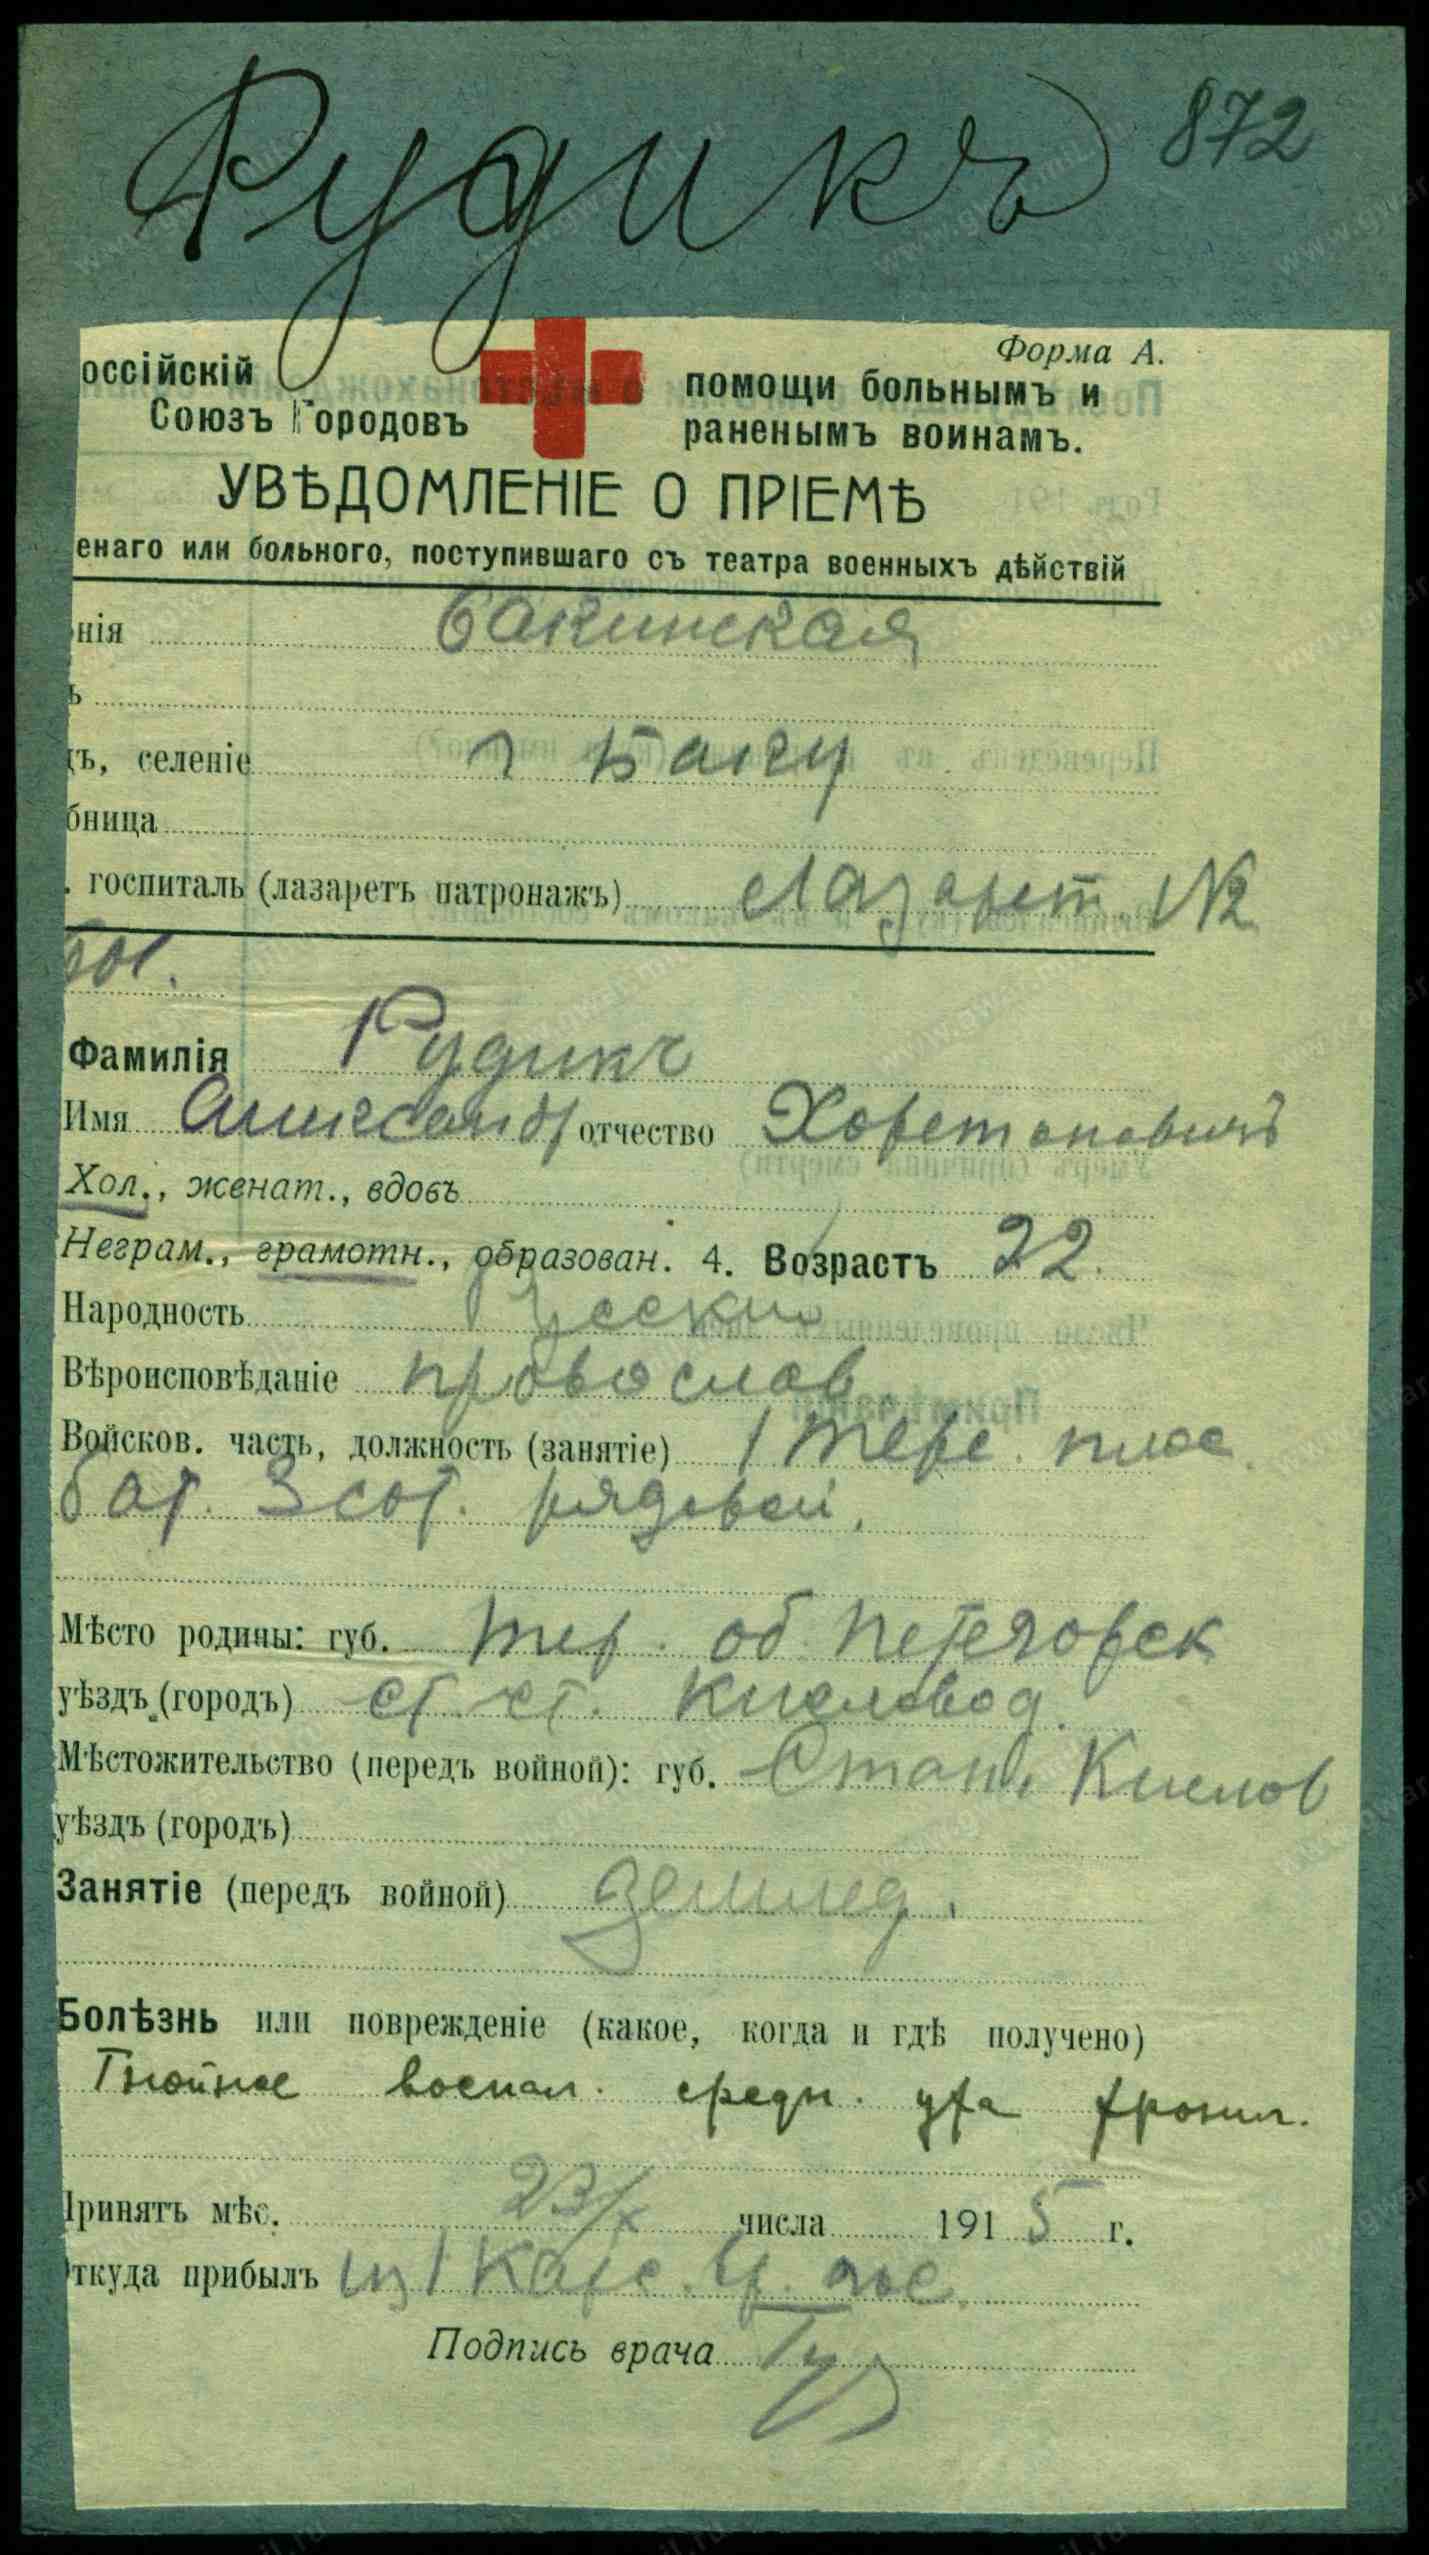 Рудикъ 872
Форма А.
оссійскій
Союзъ Городовъ
помощи больнымъ и
раненымъ воинамъ.
УВѢДОМЛЕНІЕ О ПРІЕМѢ
енаго или больного, поступившаго съ театра военныхъ дѣйствій
нія Бакинская
ъ
дъ, селеніе г Баку
бница
. госпиталь (лазаретъ патронажъ) Лазарет №2
Фамилія Рудикъ
Имя Александр отчество Харетоновичъ
Хол., женат., вдовъ
Неграм., грамотн., образован. 4. Возрастъ 22.
Народность Русский
Вѣроисповѣданіе провослав
Войсков. часть, должность (занятіе) 1 Терс. плас.
бат. 3 сот. рядовой.
Мѣсто родины: губ. Тер. об Петегорск
уѣздъ (городъ) ст. Кисловод.
Мѣстожительство (передъ войной): губ. Стан. Кислов
уѣздъ (городъ)
Занятіе (передъ войной) землед.
Болѣзнь или поврежденіе (какое, когда и гдѣ получено)
Гнойное воспал. средн. уха хронич.
Принятъ мѣс. 23/X числа 1915 г.
Откуда прибылъ из Карс.
Подпись врача
www.gwar.mil.ru